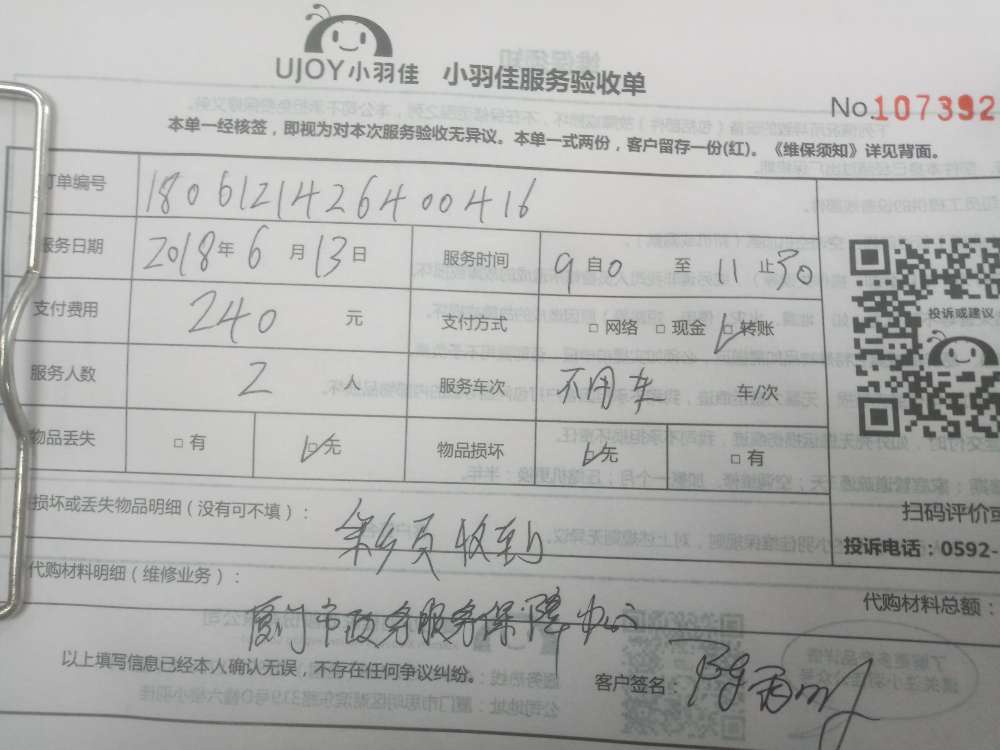 UJOY小羽佳 小羽佳服务验收单
No.107392
本单一经核签，即视为对本次服务验收无异议。本单一式两份，客户留存一份(红)。《维保须知》详见背面。
订单编号 1806121426400416
服务日期 2018年6月13日 服务时间 9自0至11止30
支付费用 240元 支付方式 □网络 □现金 □转账
服务人数 2人 服务车次 不用车 车/次
物品丢失 □有 □无 物品损坏 □无 □有
投诉或建议
损坏或丢失物品明细（没有可不填）：
收到
扫码评价或
投诉电话：0592-
代购材料明细（维修业务）：
代购材料总额：
厦门市政务服务保障中心
以上填写信息已经本人确认无误，不存在任何争议纠纷。
客户签名：